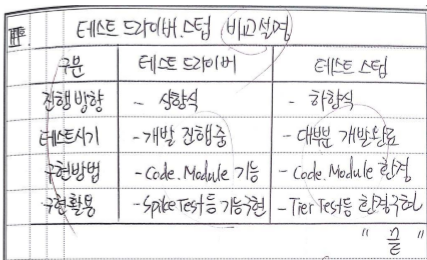 Ⅲ. 테스트 드라이버. 스텁 비교설명
구분 테스트 드라이버 테스트 스텁
진행방향 - 상향식 - 하향식
테스트시기 - 개발 진행중 - 대부분 개발완료
구현방법 - Code. Module 기능 - Code. Module 환경
구현활용 - Spike Test등 기능구현 - Tier Test등 환경구현
"끝"